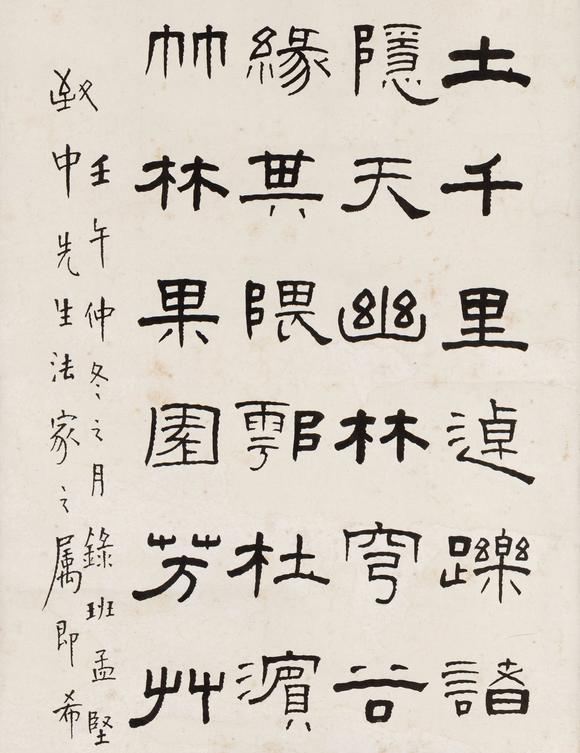 土千里逴躒諸
隱天幽林穹谷
緣其隈鄠杜濱
竹林果園芳艸
壬午仲冬之月錄班孟堅
致中先生法家之属即希